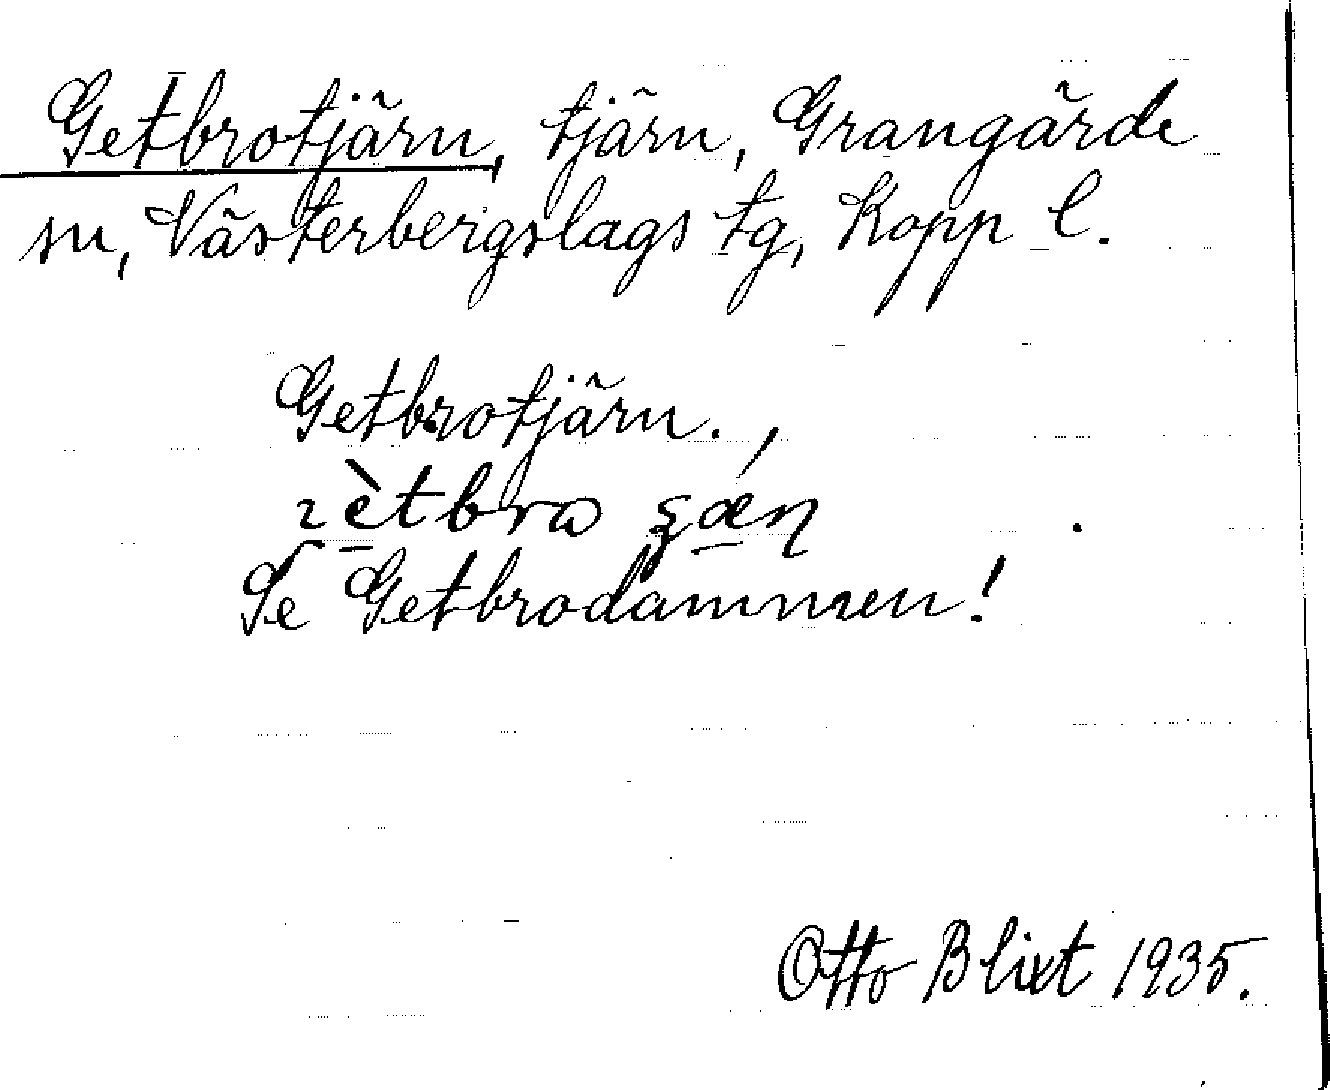 Getbrotjärn, tjärn, Grangärde
sn, Västerbergslags tg, Kopp l.
Getbrotjärn.,
Se Getbrodammen!
Otto Blixt 1935.